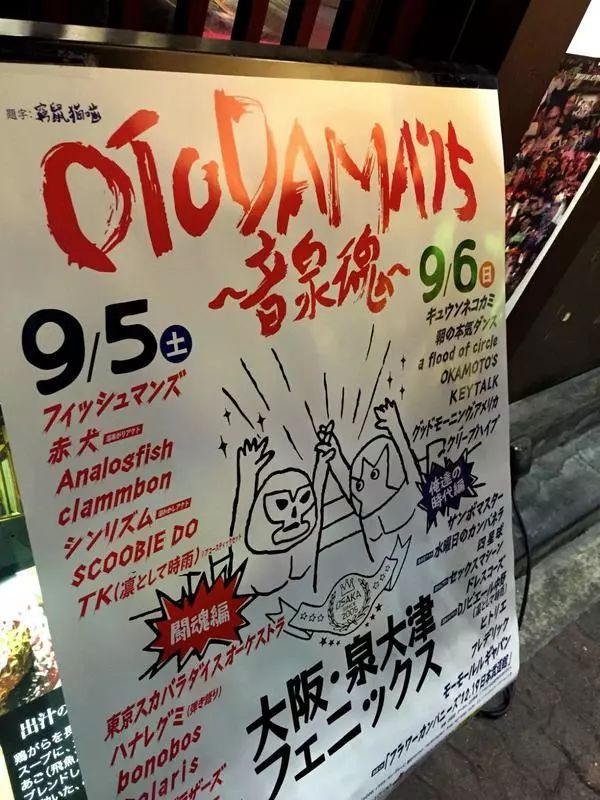 題字: 窮鼠猫噛
OTODAMA'15
〜音泉魂〜
9/5 土
フィッシュマンズ
赤犬
Analogfish
clammbon
シンリズム
SCOOBIE DO
TK(凛として時雨)
闘魂編
東京スカパラダイスオーケストラ
ハナレグミ(弾き語り)
bonobos
Polaris
9/6 日
キュウソネコカミ
朝の本気ダンス
a flood of circle
OKAMOTO'S
KEYTALK
グッドモーニングアメリカ
クリープハイプ
俺達の時代編
サンボマスター
水曜日のカンパネラ
四星球
セックスマシーン
ドレスコーズ
DJピエール中野
(凛として時雨)
ヒトリエ
フレデリック
モーモールルギャバン
「フラワーカンパニーズ'12.19日本武道館」
OSAKA
SINCE
2005
大阪・泉大津
フェニックス
出汁の
鶏がらを長
スープに、
あご(飛魚
ブレンドし